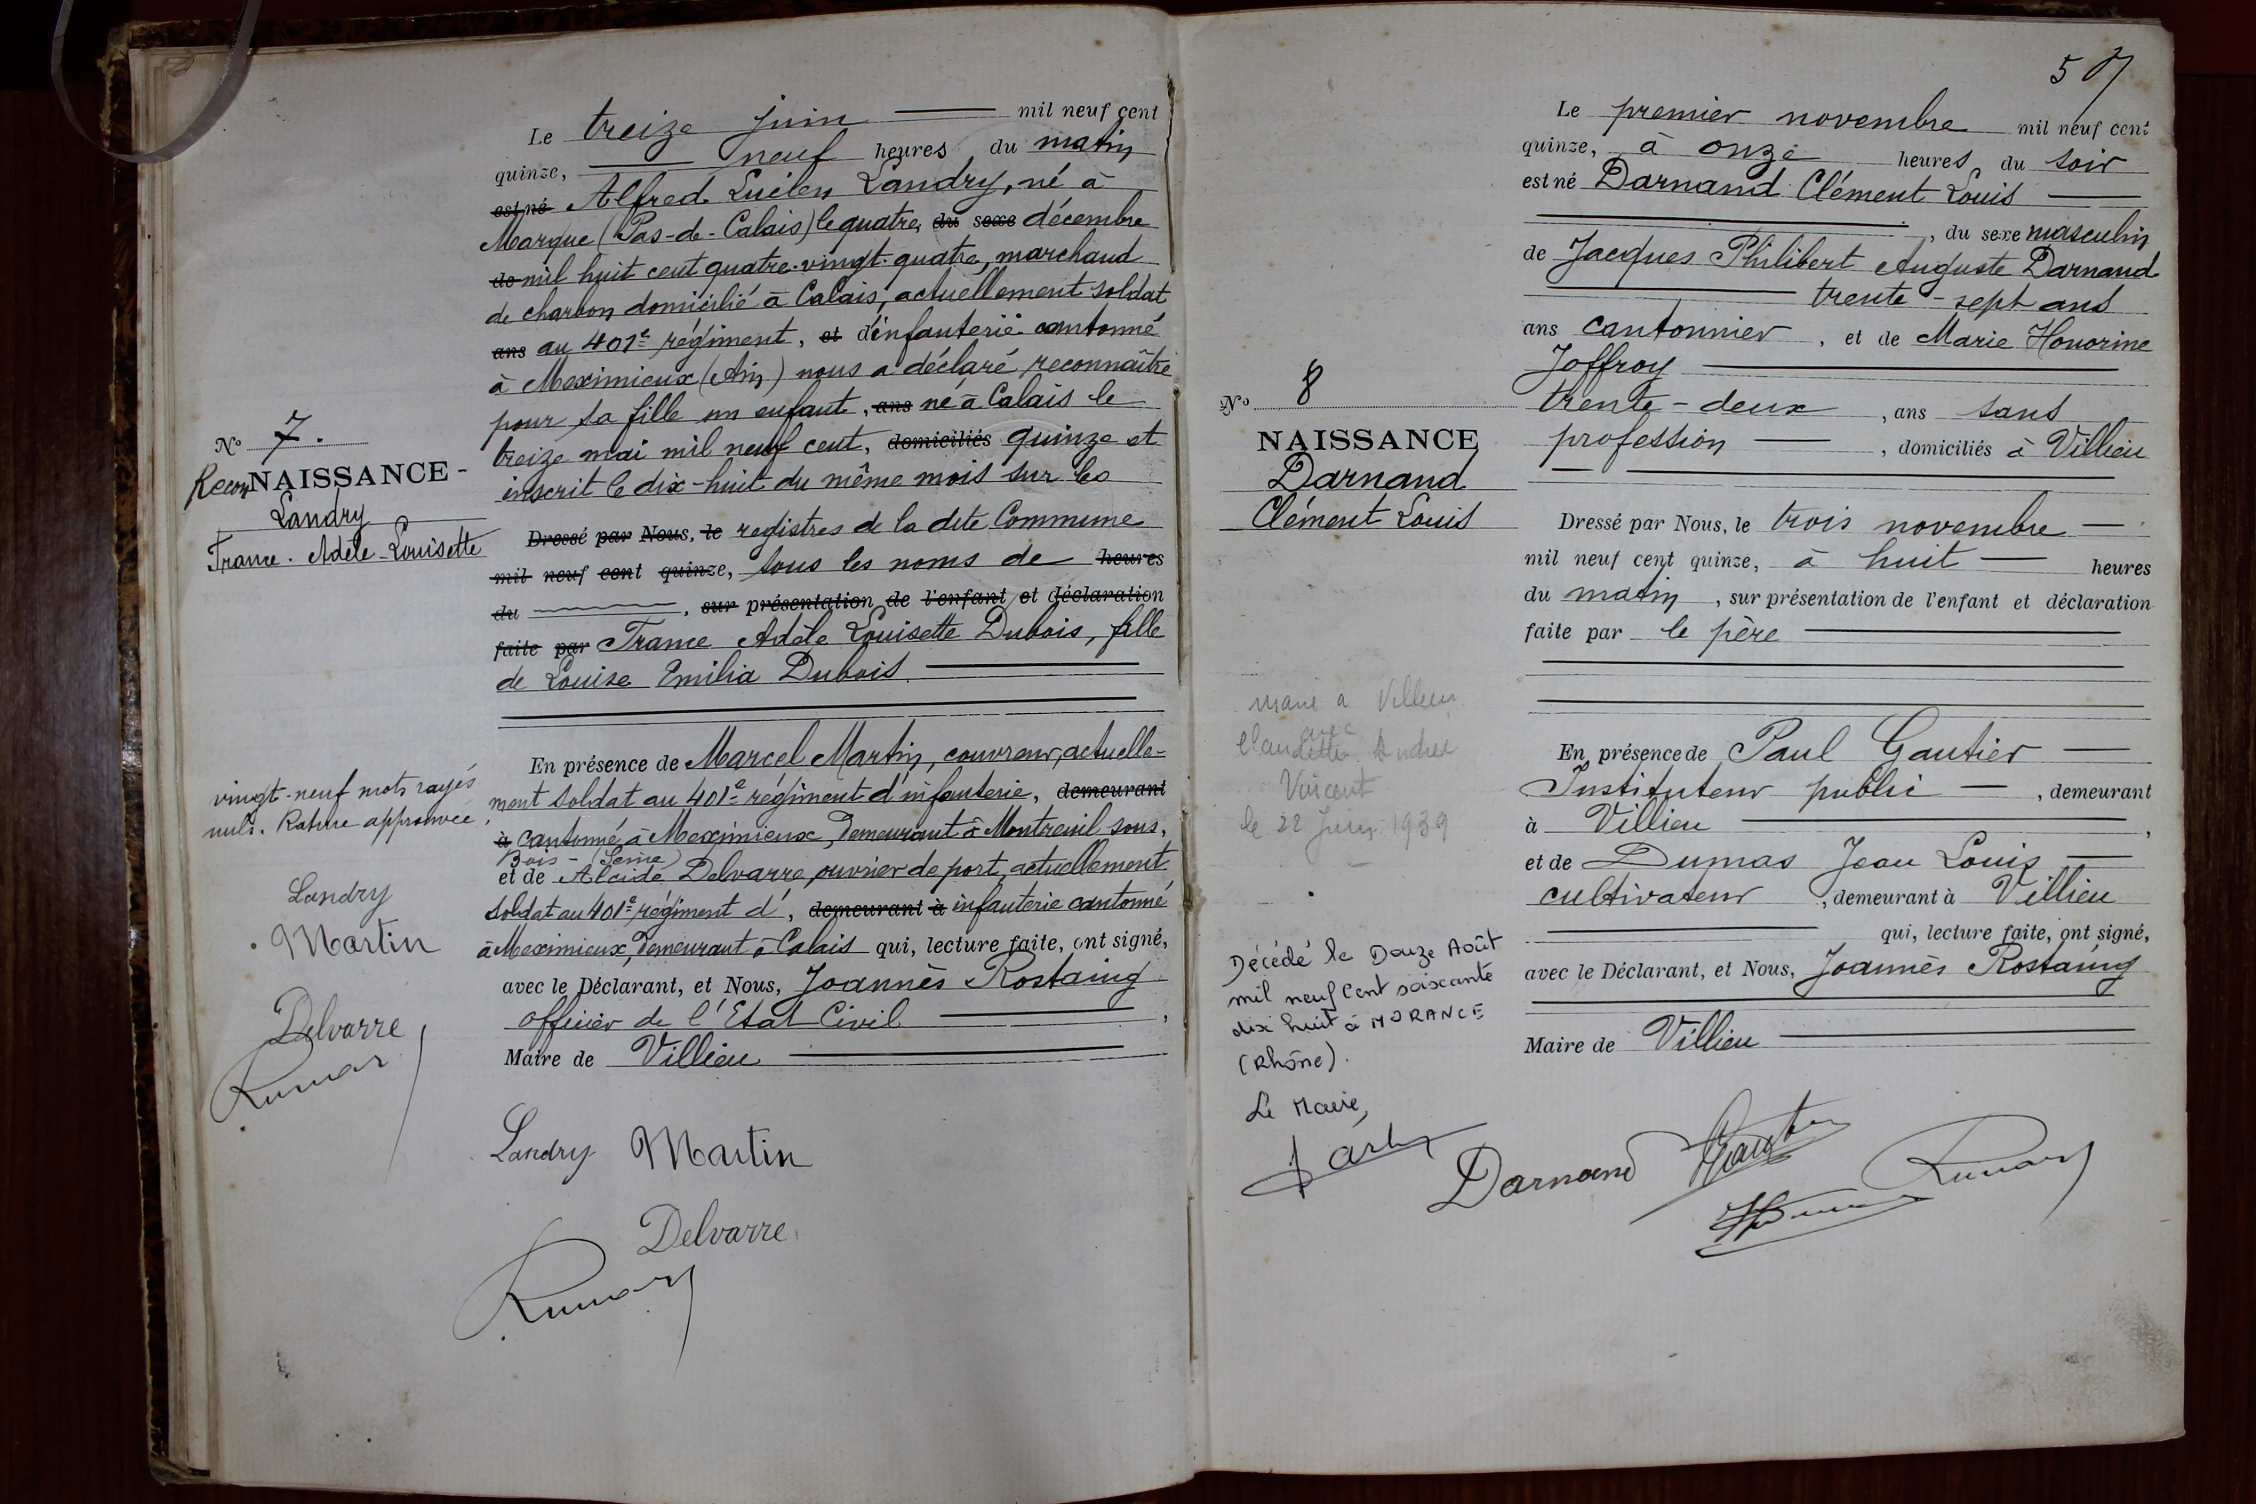 Le treize juin mil neuf cent
quinze, neuf heures du matin
est né Alfred Lucien Landry, né à
Marque (Pas-de-Calais) le quatre, du sexe décembre
de mil huit cent quatre-vingt-quatre, marchand
de charbon domicilié à Calais, actuellement soldat
ans au 401e régiment, et d'infanterie cantonné
à Meximieux (Ain) nous a déclaré reconnaître
pour sa fille un enfant, ans né à Calais le
treize mai mil neuf cent, domiciliés quinze et
inscrit le dix-huit du même mois sur les
Dressé par Nous, le registres de la dite Commune
mil neuf cent quinze, sous les noms de heures
du , sur présentation de l'enfant et déclaration
faite par France Adèle Louisette Dubois, fille
de Louise Emilia Dubois.
En présence de Marcel Martin, couvreur, actuelle-
ment soldat au 401e régiment d'infanterie, demeurant
à cantonné à Meximieux, demeurant à Montreuil sous,
Bois - (Seine)
et de Alcide Delvarre, ouvrier de port, actuellement
soldat au 401e régiment d', demeurant à infanterie cantonné
à Meximieux, demeurant à Calais qui, lecture faite, ont signé,
avec le Déclarant, et Nous, Joannès Rostaing
officier de l'Etat Civil ,
Maire de Villieu
Landry Martin
Delvarre
No 7.
ReconNAISSANCE -
Landry
France - Adèle - Louisette
vingt-neuf mots rayés
nuls. Rature approuvée.
Landry
Martin
Delvarre
57
Le premier novembre mil neuf cent
quinze, à onze heures du soir
est né Darnand Clément Louis
, du sexe masculin
de Jacques Philibert Auguste Darnand
trente-sept ans
ans cantonnier , et de Marie Honorine
Joffroy
trente-deux , ans sans
profession , domiciliés à Villieu
Dressé par Nous, le trois novembre
mil neuf cent quinze, à huit heures
du matin , sur présentation de l'enfant et déclaration
faite par le père
En présence de Paul Gautier
Instituteur public , demeurant
à Villieu ,
et de Dumas Jean Louis
cultivateur , demeurant à Villieu
qui, lecture faite, ont signé,
avec le Déclarant, et Nous, Joannès Rostaing
Maire de Villieu
Darnand Gautier
No 8
NAISSANCE
Darnand
Clément Louis
marié à Villieu
avec
Claudette Andrée
Vincent
le 22 1939
Décédé le Douze Août
mil neuf cent soixante
dix huit à MORANCE
(Rhône).
Le Maire,